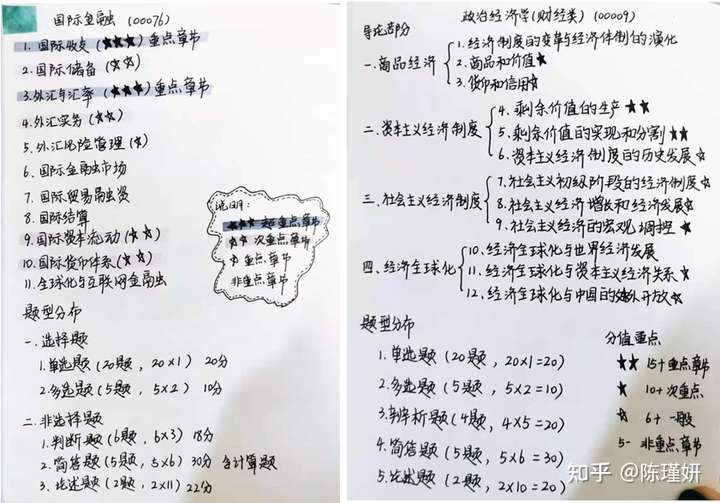 国际金融 (00076)
1.国际收支(★★★)重点章节
2.国际储备(☆☆)
3.外汇与汇率(★★★)重点章节
4.外汇实务(☆☆)
5.外汇风险管理(☆)
6.国际金融市场
7.国际贸易融资
8.国际结算
9.国际资本流动(☆)
10.国际货币体系(☆)
11.全球化与互联网金融
说明:
★★★超重点章节
☆☆次重点章节
☆重点章节
非重点章节
题型分布
一.选择题
1.单选题(20题,20×1) 20分
2.多选题(5题,5×2) 10分
二.非选择题
1.判断题(6题,6×3) 18分
2.简答题(5题,5×6) 30分 含计算题
3.论述题(2题,2×11) 22分
政治经济学(财经类)(00009)
导论部分
一.商品经济
1.经济制度的变革与经济体制的演化
2.商品和价值☆
3.货币和信用☆
二.资本主义经济制度
4.剩余价值的生产★★
5.剩余价值的实现和分割★★
6.资本主义经济制度的历史发展☆
三.社会主义经济制度
7.社会主义初级阶段的经济制度☆
8.社会主义经济增长和经济发展☆
9.社会主义经济的宏观调控★
四.经济全球化
10.经济全球化与世界经济发展
11.经济全球化与资本主义经济关系☆
12.经济全球化与中国的对外开放★
题型分布
1.单选题(20题,20×1=20)
2.多选题(5题,5×2=10)
3.辨析题(4题,4×5=20)
4.简答题(5题,5×6=30)
5.论述题(2题,2×10=20)
分值 重点
★★ 15+重点章节
★ 10+次重点
☆ 6+一般
5- 非重点章节
知乎 @陈瑾妍